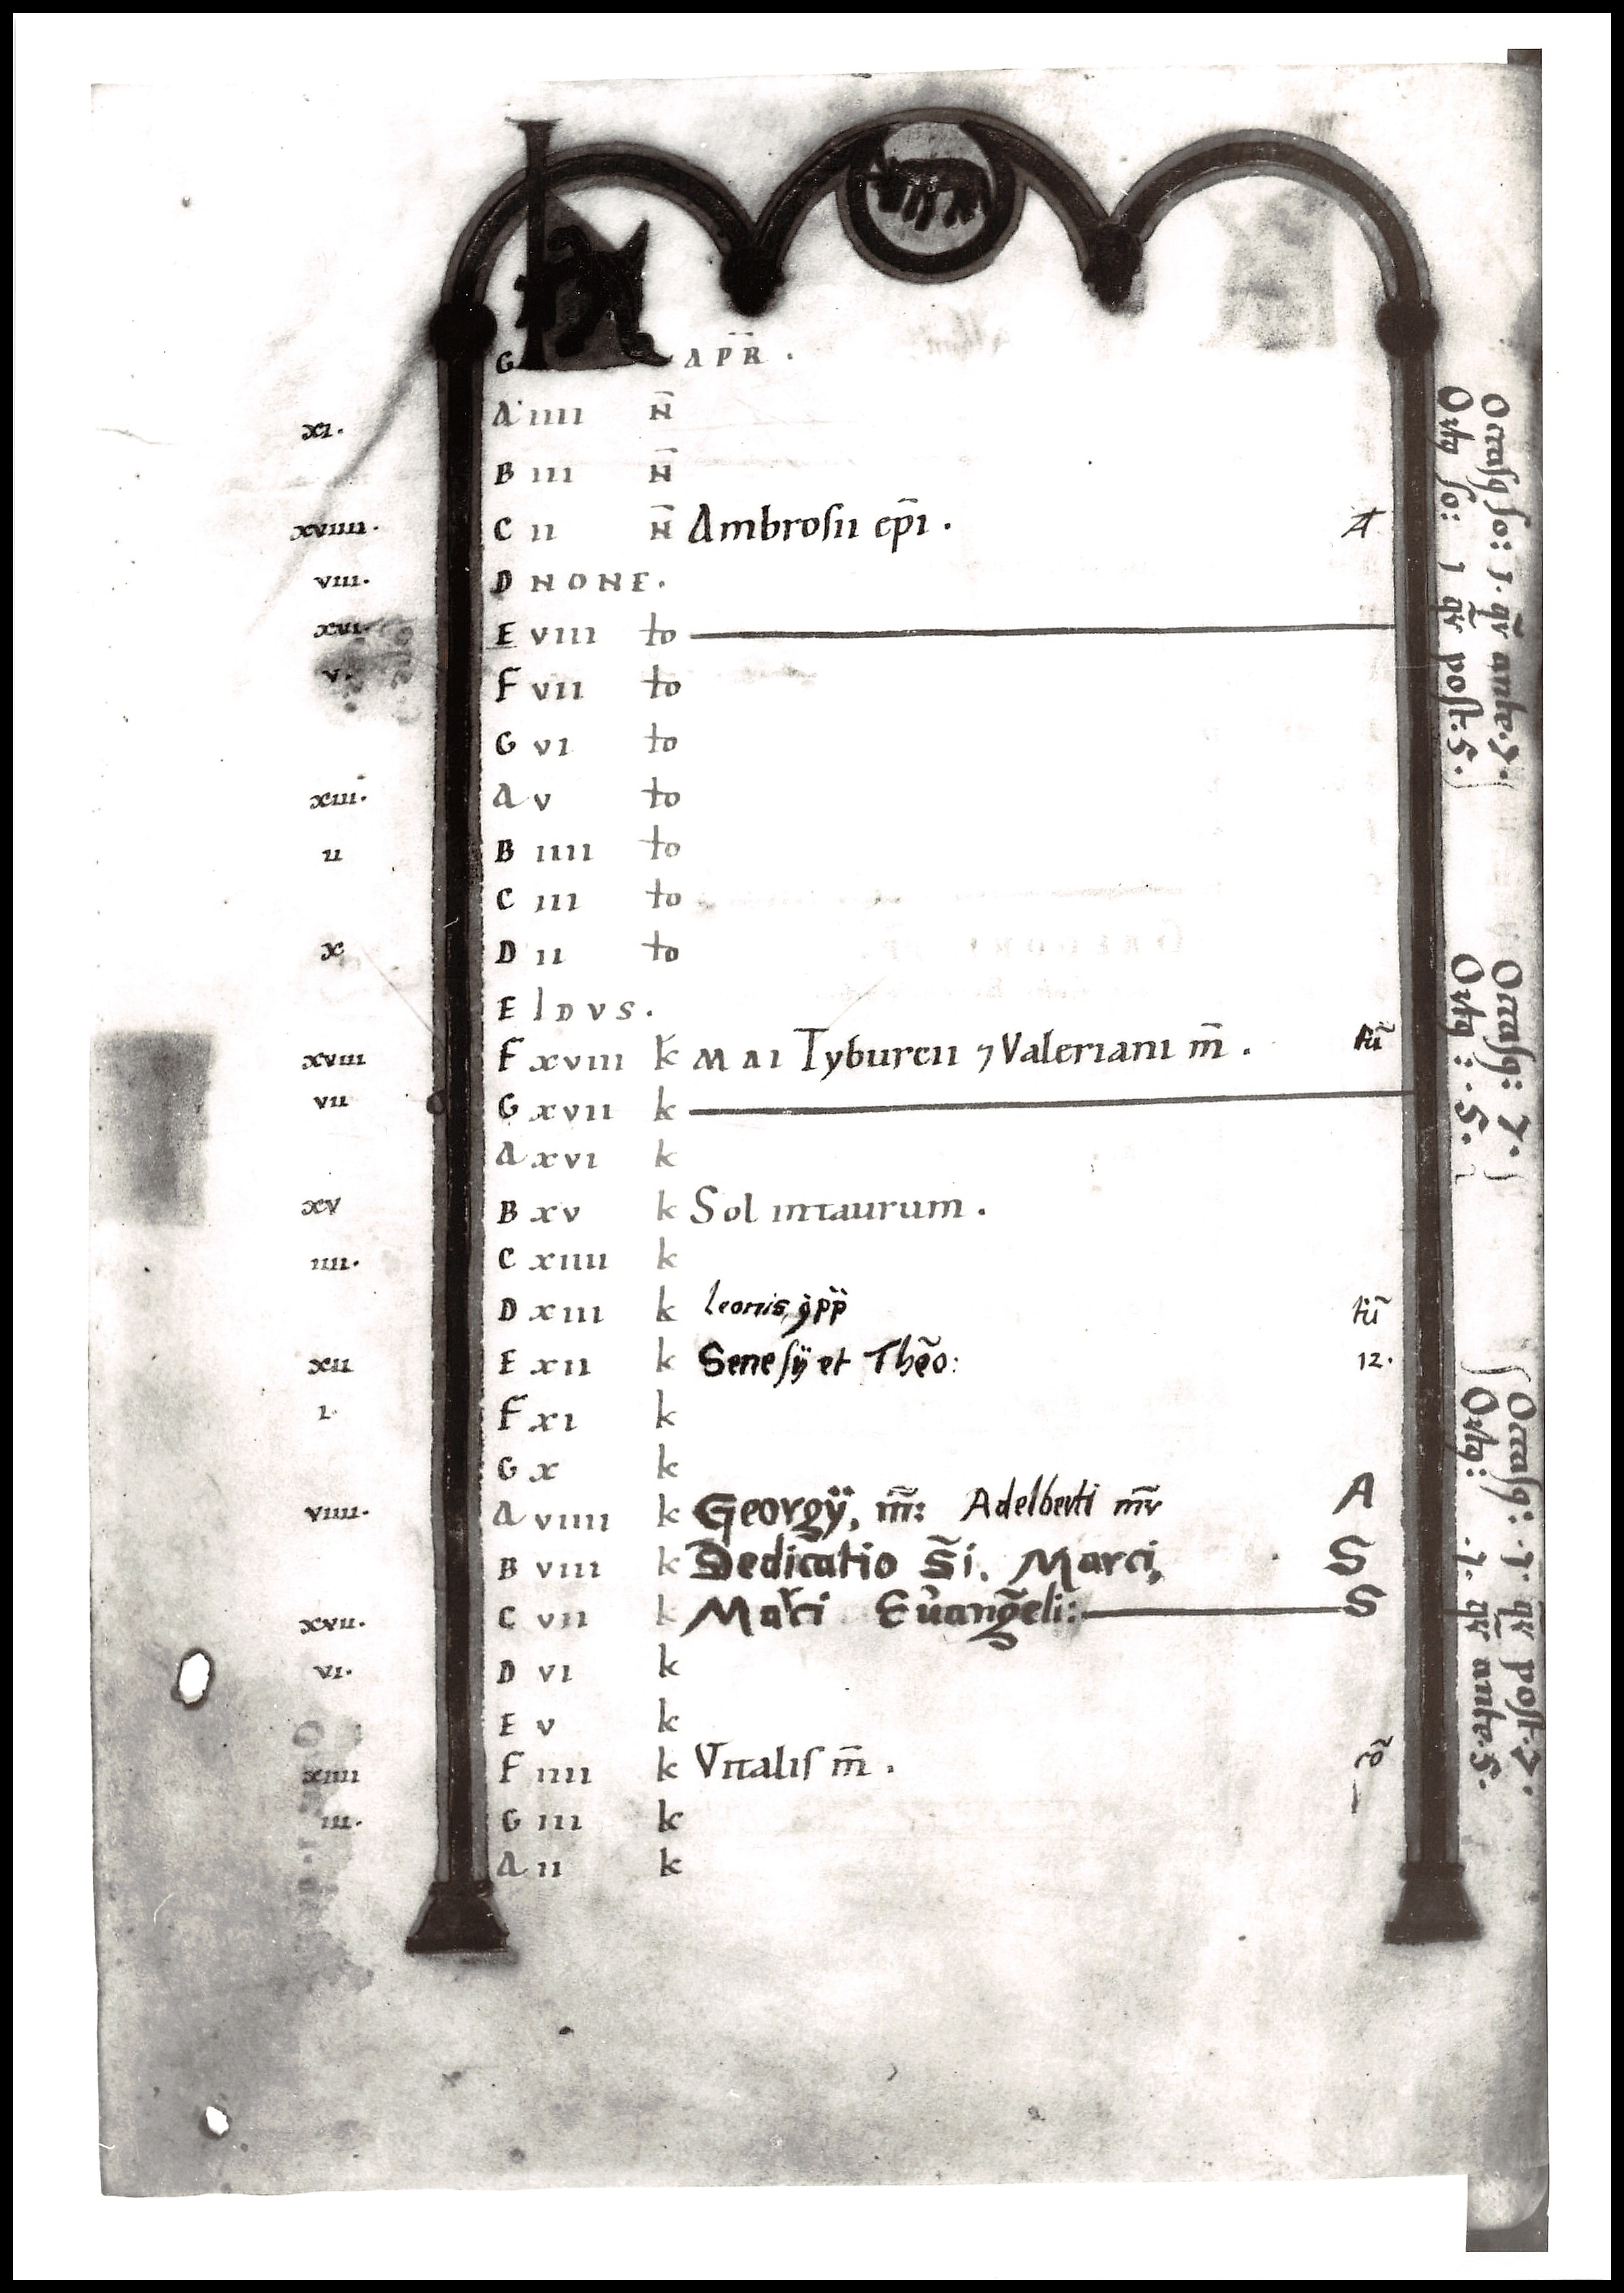 G KL APR̄ .
xi. A iiii N̄
B iii N̄
xviiii. C ii N̄ Ambrosii ep̄i . A
viii. D NONE.
xvi. E viii to
v. F vii to
G vi to
xiii. A v to
ii B iiii to
C iii to
x D ii to
E IDVS.
xviii F xviii k MAI Tyburcii ⁊ Valeriani m̄ . tu̅
vii G xvii k
A xvi k
xv B xv k Sol in taurum .
iiii. C xiiii k
D xiii k leonis, 9 pp̄ tu̅
xii E xii k Senesÿ et Theo̅: 12.
i. F xi k
G x k
viiii. A viiii k Georgÿ, m̄: Adelberti m̄r A
B viii k Dedicatio S̄i. Marci, S
xvii. C vii k Marci Euang̅eli: S
vi. D vi k
E v k
xiiii F iiii k Vitalis m̄ . co̅
iii. G iii k
A ii k
Occasꝯ so: 1. qr̄ ante. 7.
Ortꝯ so: 1 qr̄ post. 5.
Occasꝯ: 7.
Ortꝯ: 5.
Occasꝯ: 1 qr̄ post. 7.
Ortꝯ: 1. qr̄ ante. 5.